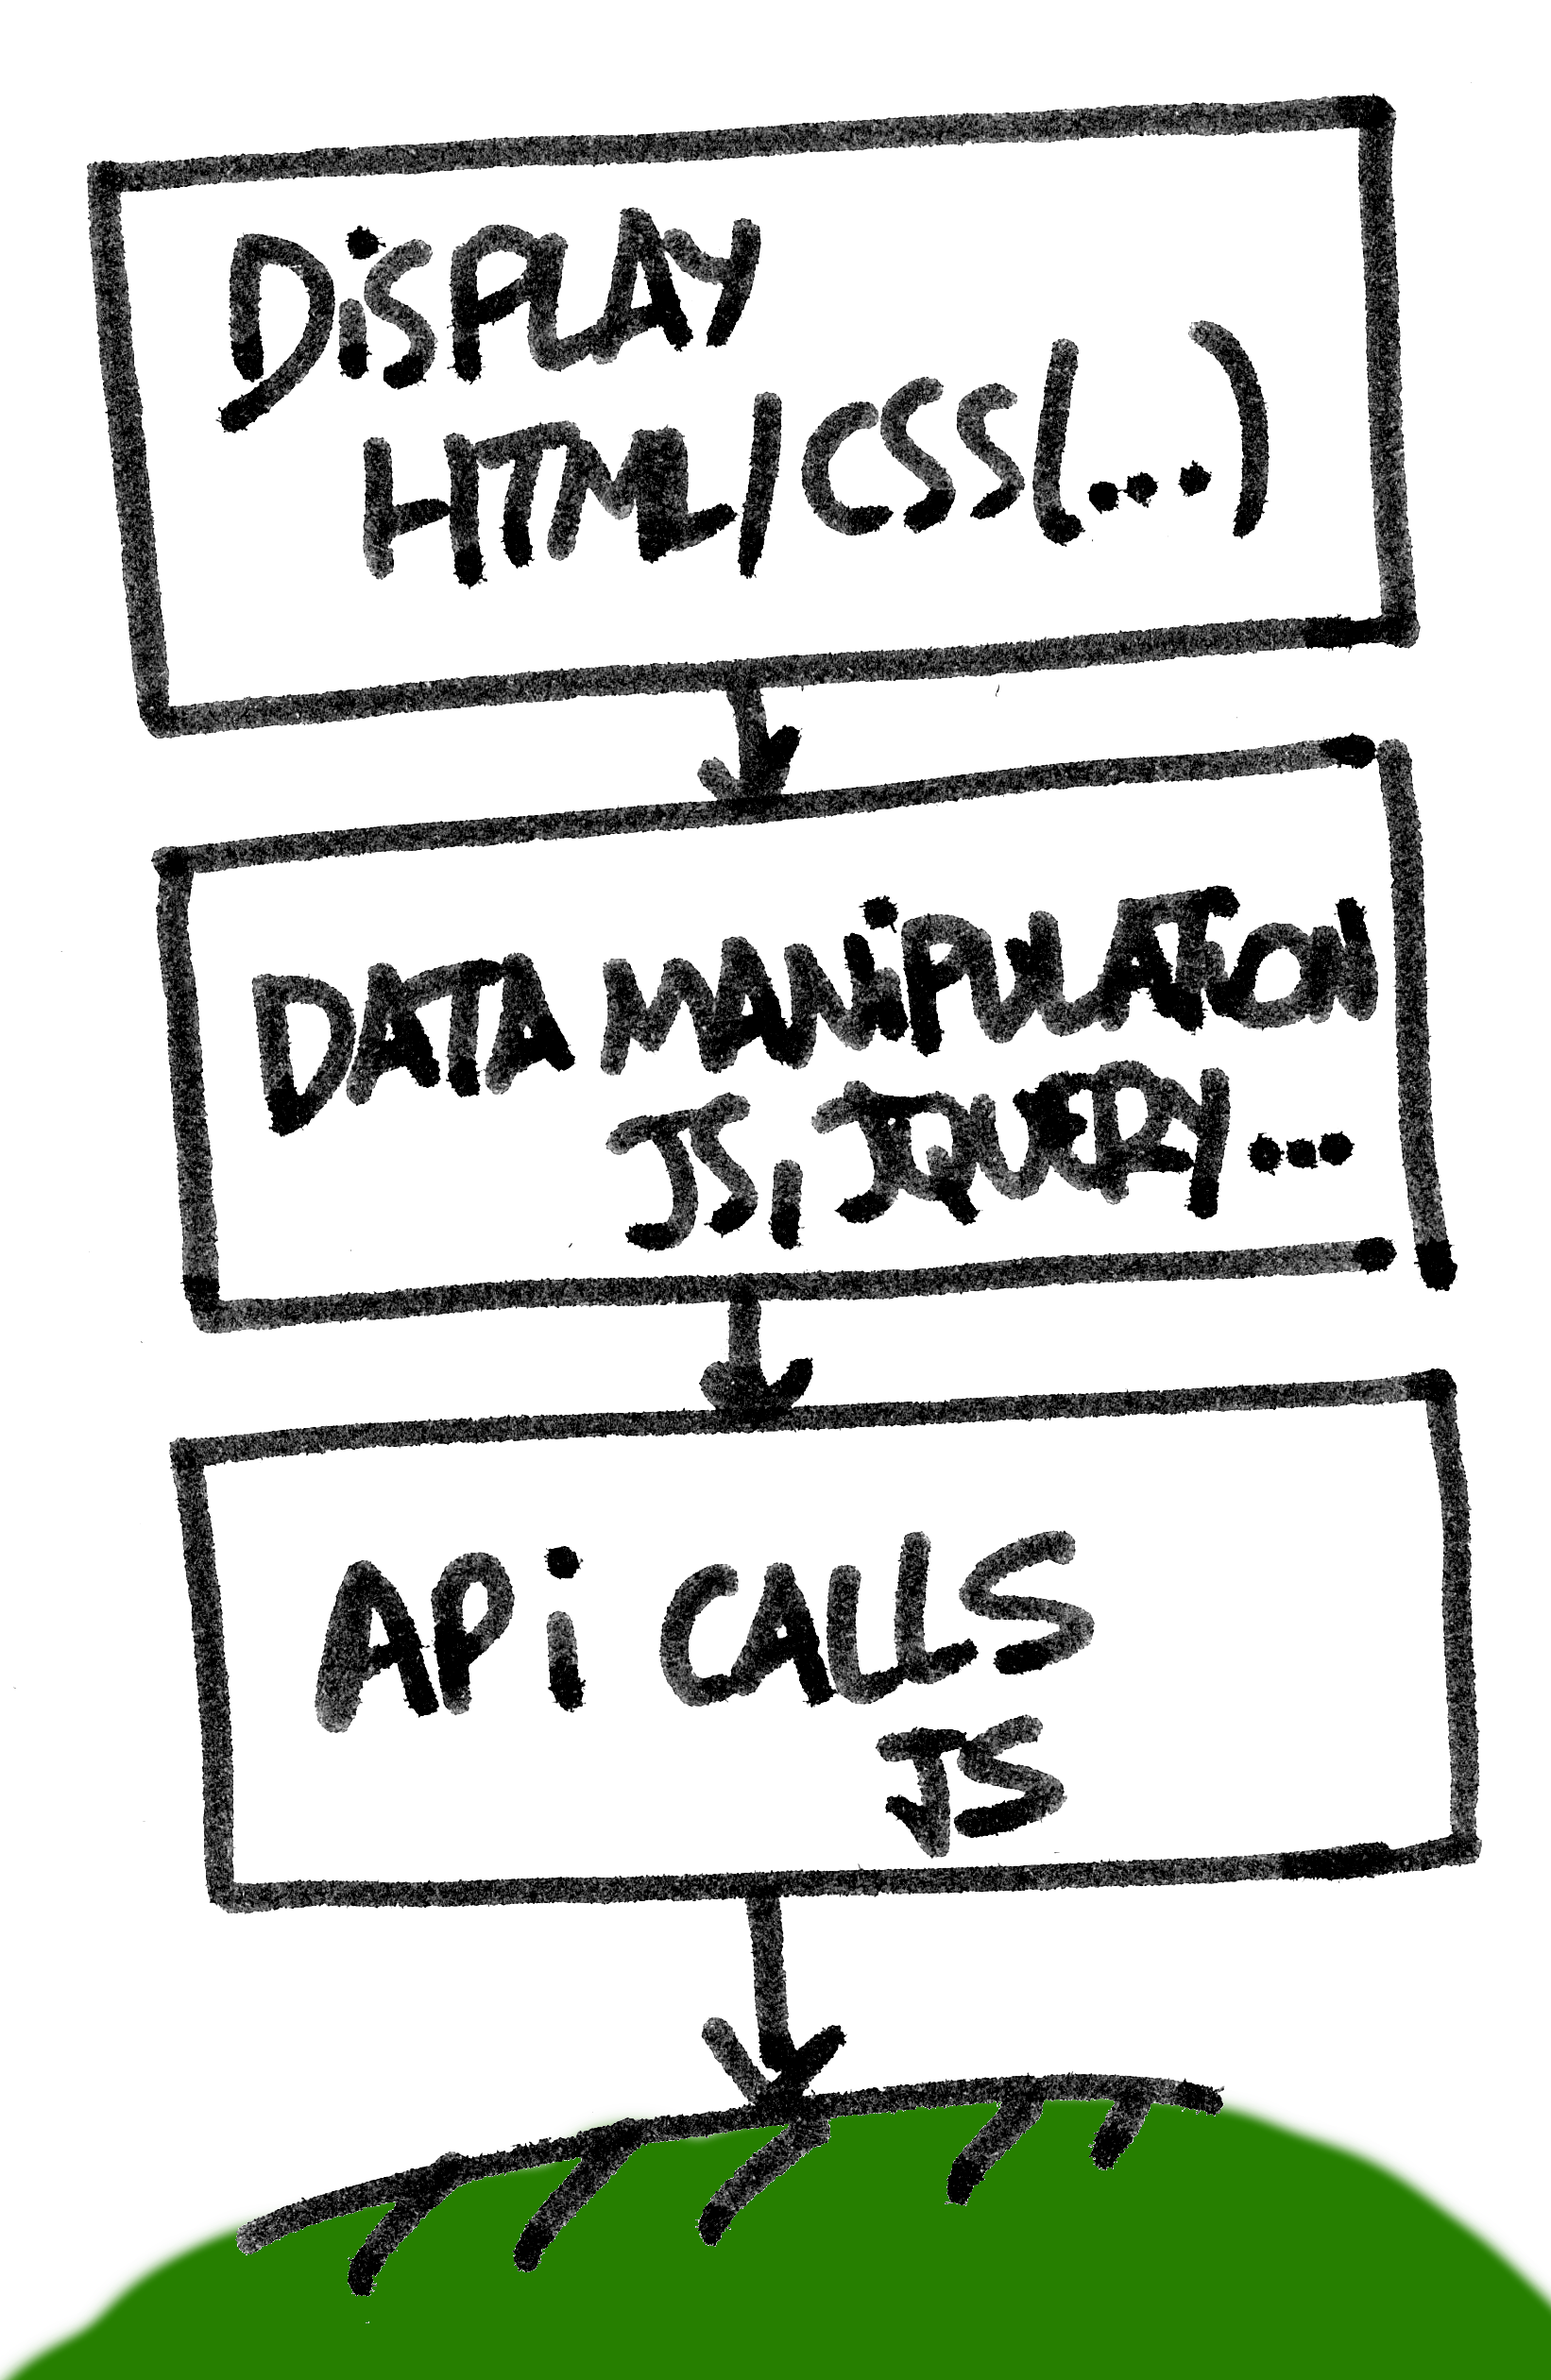 DiSPLAY
HTML/CSS(...)
DATA MANiPULATiON
JS, JQUERY...
APi CALLS
JS